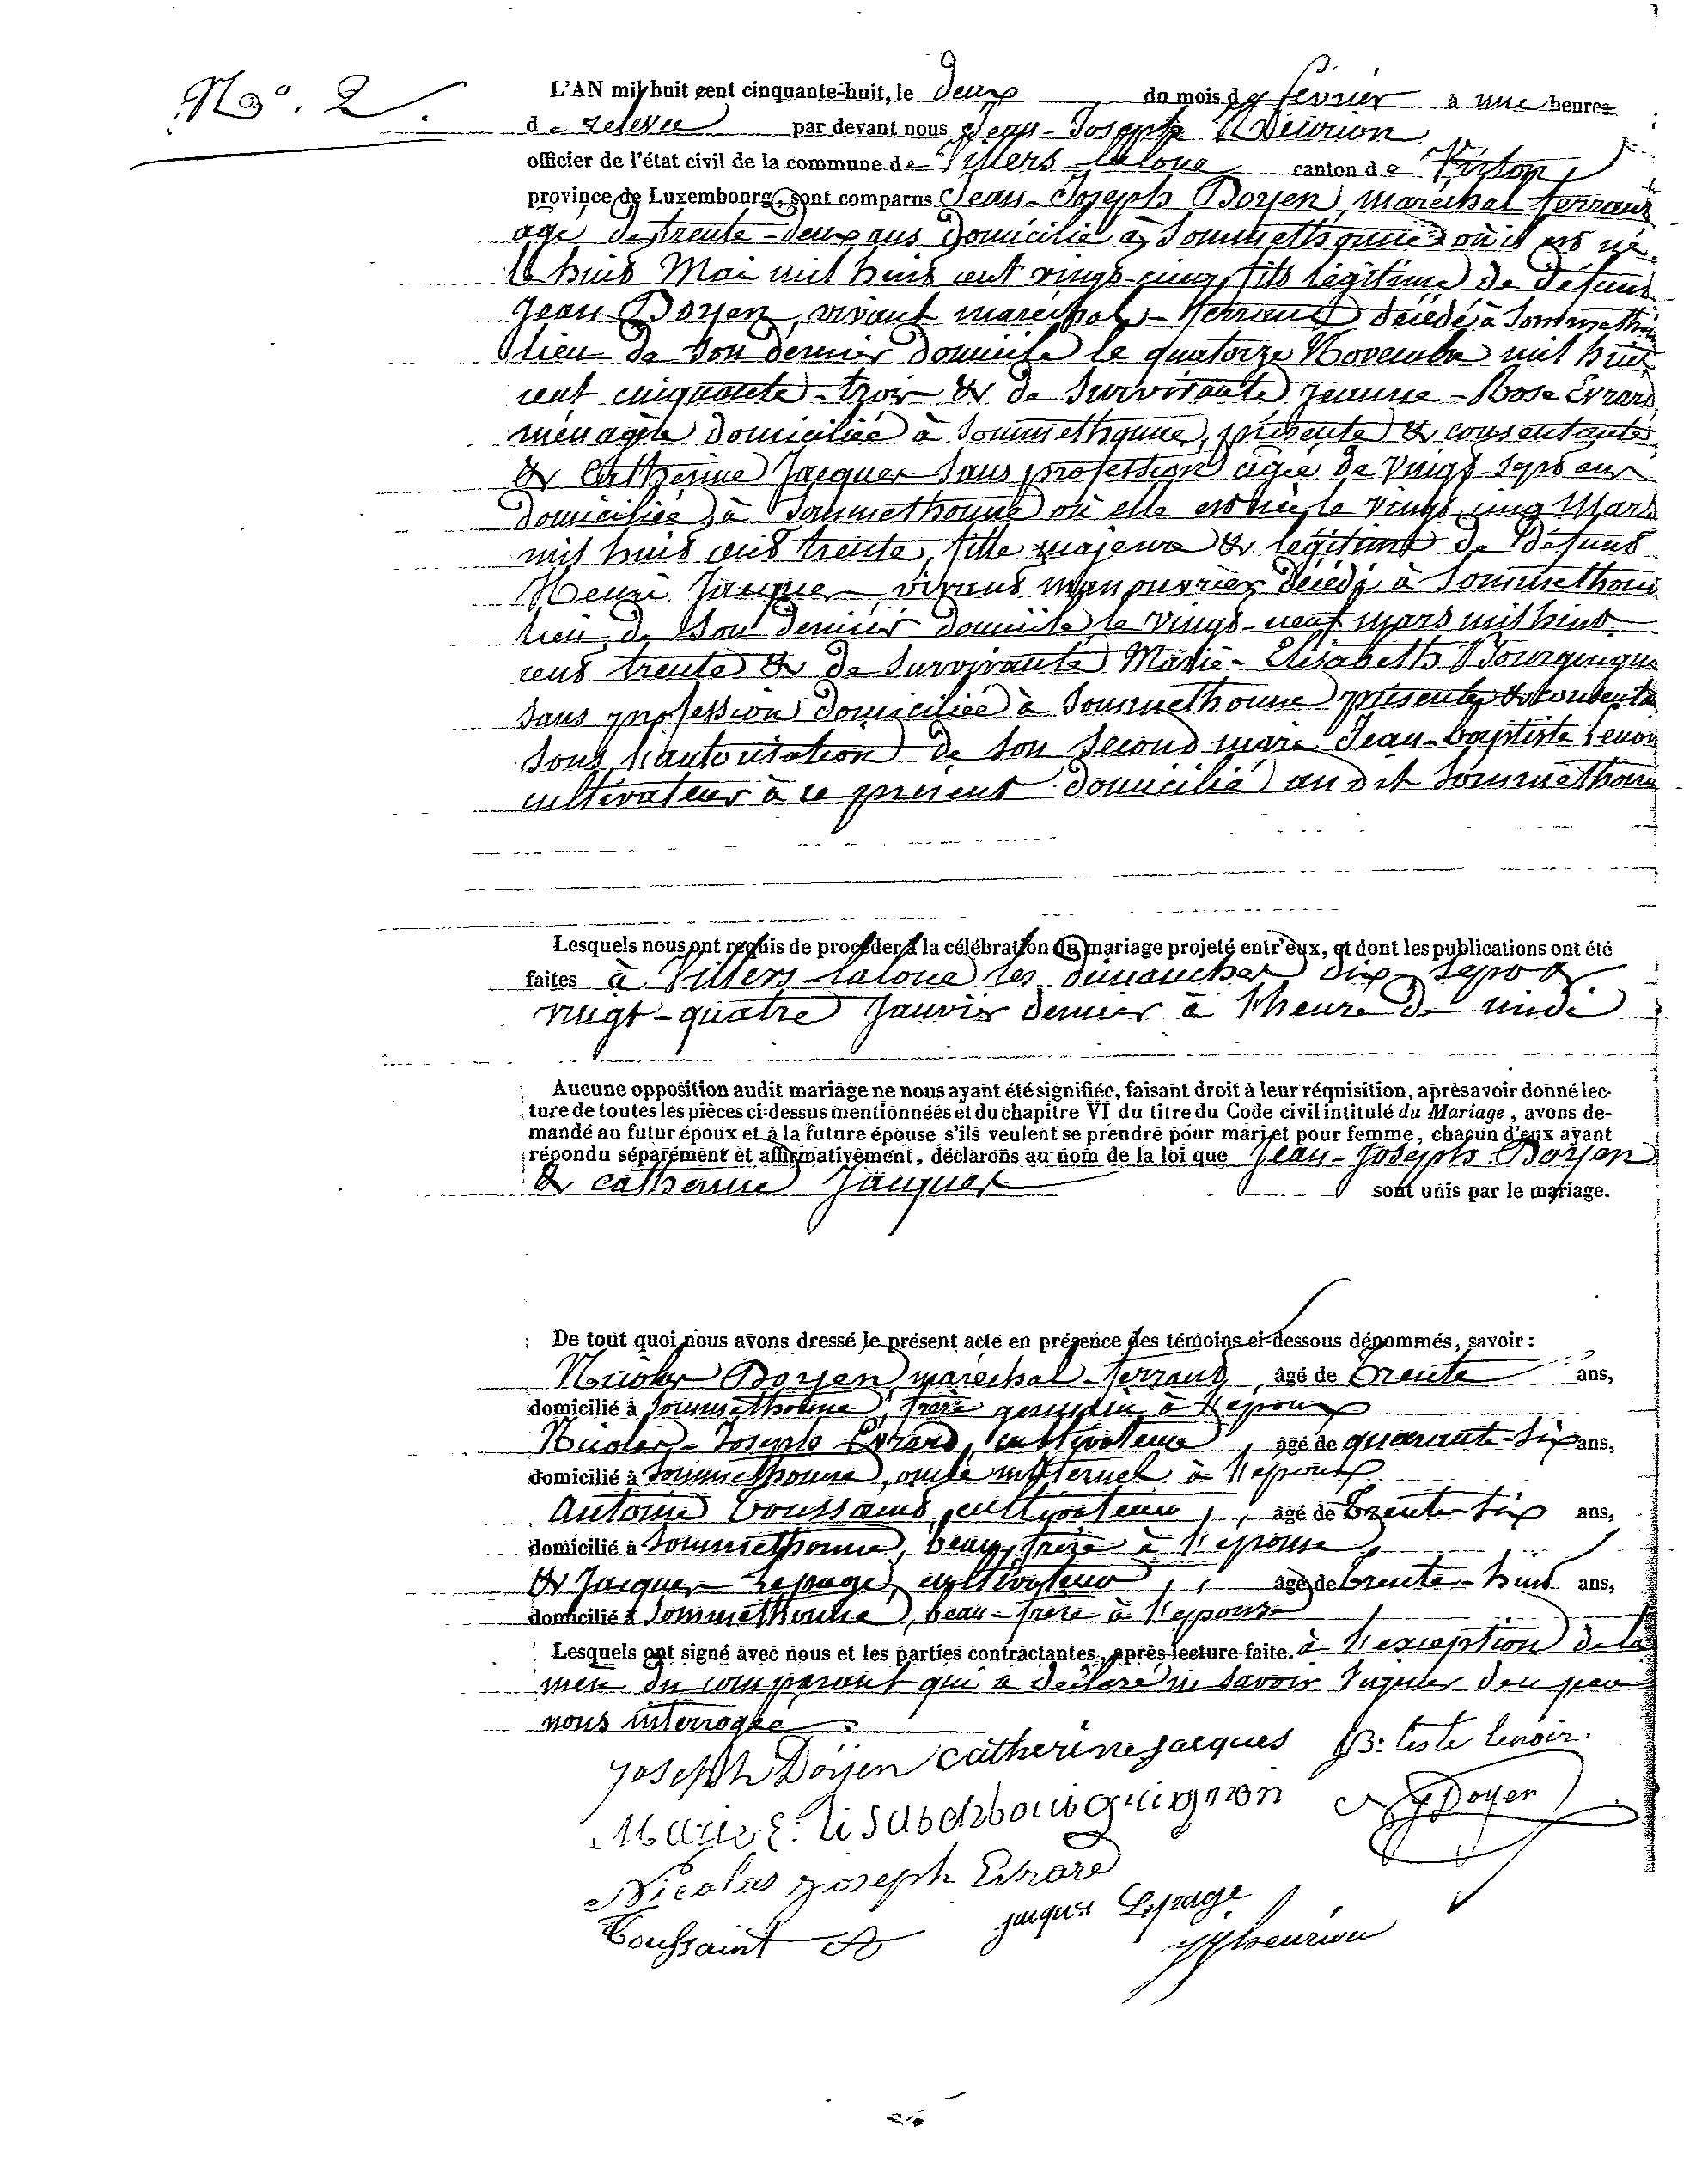 No. 2
L'AN mil huit cent cinquante-huit, le deux du mois de février à une heure
de relevée par devant nous Jean-Joseph Theurion
officier de l'état civil de la commune de Villers-laloue canton de Virton
province de Luxembourg, sont comparus Jean-Joseph Doyen, maréchal ferrant
âgé de trente-deux ans domicilié à Sommethonne où il est né
le huit Mai mil huit cent vingt-cinq, fils légitime de défunt
Jean Doyen, vivant maréchal-ferrant décédé à Sommethonne
lieu de son dernier domicile le quatorze Novembre mil huit
cent cinquante-trois & de survivante Jeanne-Rose Evrard
ménagère domiciliée à Sommethonne, présente & consentante
& Catherine Jacques sans profession âgée de vingt-sept ans
domiciliée à Sommethonne où elle est née le vingt cinq Mars
mil huit cent trente, fille majeure & légitime de défunt
Henri Jacques, vivant manouvrier décédé à Sommethonne
lieu de son dernier domicile le vingt-neuf mars mil huit
cent trente & de survivante Marie-Elisabeth Bourguigno
sans profession domiciliée à Sommethonne présente & consenta
sous l'autorisation de son second mari Jean-baptiste Lenoir
cultivateur à ce présent domicilié au dit Sommethonne
Lesquels nous ont requis de procéder à la célébration du mariage projeté entr'eux, et dont les publications ont été
faites à Villers-laloue les dimanches dix-sept &
vingt-quatre Janvier dernier à l'heure de midi
Aucune opposition audit mariage ne nous ayant été signifiée, faisant droit à leur réquisition, après avoir donné lec-
ture de toutes les pièces ci-dessus mentionnées et du chapitre VI du titre du Code civil intitulé du Mariage, avons de-
mandé au futur époux et à la future épouse s'ils veulent se prendre pour mari et pour femme, chacun d'eux ayant
répondu séparément et affirmativement, déclarons au nom de la loi que Jean-Joseph Doyen
& Catherine Jacques sont unis par le mariage.
De tout quoi nous avons dressé le présent acte en présence des témoins ci-dessous dénommés, savoir :
Nicolas Doyen, maréchal-ferrant, âgé de trente ans,
domicilié à Sommethonne, frère germain à l'époux
Nicolas-Joseph Evrard, cultivateur, âgé de quarante-six ans,
domicilié à Sommethonne, oncle maternel à l'époux
Antoine Toussaint, cultivateur, âgé de trente-six ans,
domicilié à Sommethonne, beau-frère à l'épouse
& Jacques Lepage, cultivateur, âgé de trente-huit ans,
domicilié à Sommethonne, beau-frère à l'épouse
Lesquels ont signé avec nous et les parties contractantes, après lecture faite. à l'exception de la
mère du comparant qui a déclaré ne savoir signer de ce par
nous interrogée.
Joseph Doÿen Catherine Jacques B:tiste lenoir.
Marie E:lisabeth bourguignon N J Doyen
Nicolas Joseph Evrard
Toussaint A jacques Lepage
JJTheurion